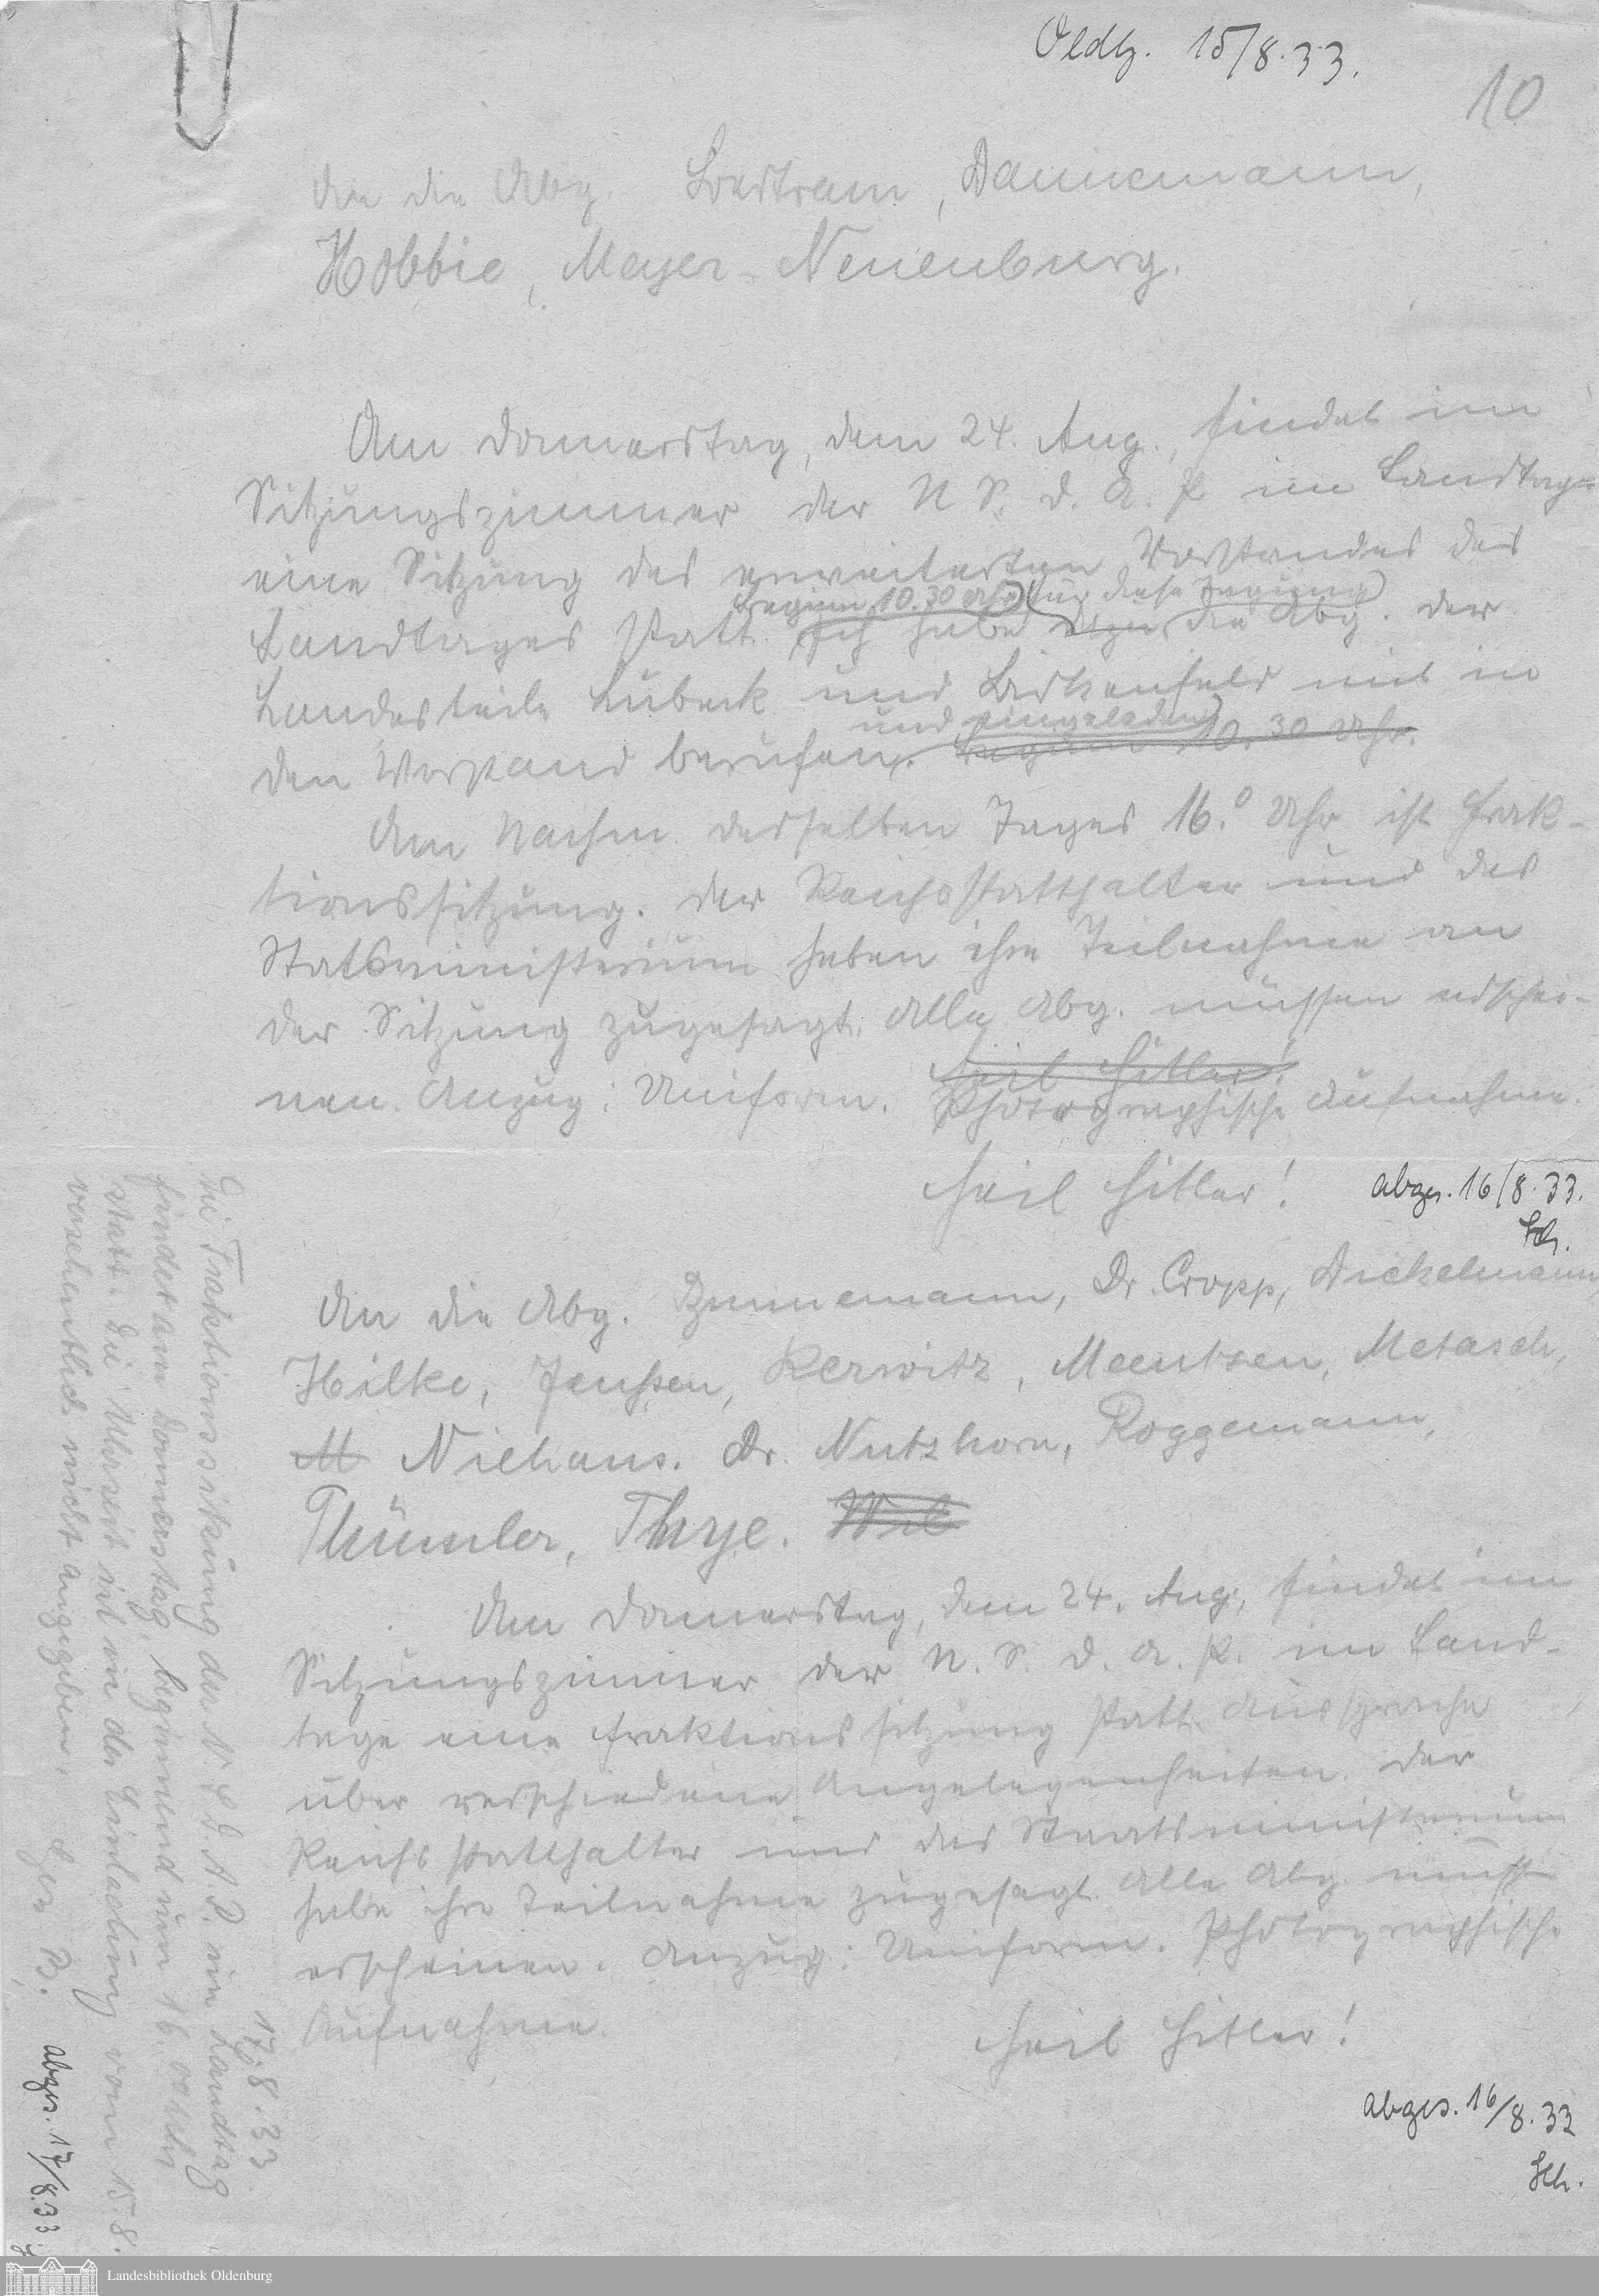 Oldbg. 15/8.33.
10
An die Abg. Bertram, Dannemann,
Hobbie, Meyer-Neuenburg.
Am Donnerstag, dem 24. Aug., findet im
Sitzungszimmer der N S. D. A. P im Landtage
eine Sitzung des erweiterten Vorstandes des
Beginn 10.30 Uhr für diese Tagung
Landtages statt. Ich habe dazu die Abg. der
Landesteile Lübeck und Birkenfeld mit in
und eingeladen
den Vorstand berufen. Beginn 10.30 Uhr.
Am Nachm. desselben Tages 16.⁰ Uhr ist Frak-
tionssitzung. Der Reichsstatthalter und das
Statsministerium haben ihre Teilnahme an
der Sitzung zugesagt. Alle Abg. müssen erschei-
Heil Hitler!
nen. Anzug: Uniform. Photographische Aufnahme.
Heil Hitler!
abges. 16/8.33.
Sch.
An die Abg. Brunnemann, Dr. Cropp, Dickelmann,
Hilke, Janssen, Kerwitz, Meentzen, Metasch,
M Niehaus. Dr. Nutzhorn, Roggemann,
Thümler, Thye. Wil
Am Donnerstag, dem 24. Aug., findet im
Sitzungszimmer der N. S. D. A. P. im Land-
tage eine Fraktionssitzung statt. Aussprache
über verschiedene Angelegenheiten. Der
Reichsstatthalter und das Staatsministerium
habe ihre Teilnahme zugesagt. Alle Abg. müssen
erscheinen. Anzug: Uniform. Photographische
Aufnahme.
Heil Hitler!
abges. 16/8.33
Sch.
17.8.33
Die Fraktionssitzung der N. S. D. A. P. im Landtag
findet am Donnerstag, beginnend um 16.00 Uhr
statt. Die Uhrzeit ist in der Einladung vom 15.8.
versehentlich nicht angegeben.
gez. B.
abges. 17/8.33
Landesbibliothek Oldenburg